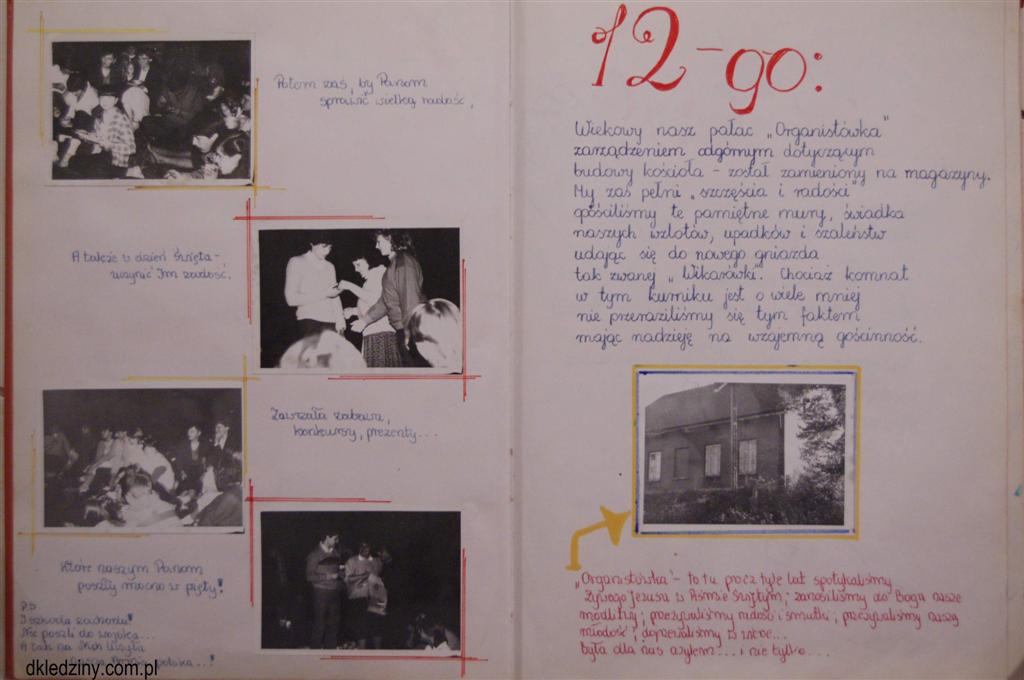 Potem zaś, by Paniom
sprawić wielką radość,
A także w dzień Święta -
uczynić Im zadość.
Zawrzała zabawa,
konkursy, prezenty...
Które naszym Paniom
poszły mocno w pięty!
P.S.
I szkoda zachodu!
Nie poszli do wojska...
A tak na Nich liczyła
polska...!
dkledziny.com.pl
12-go:
Wiekowy nasz pałac „Organistówka"
zarządzeniem odgórnym dotyczącym
budowy kościoła - został zamieniony na magazyny.
My zaś pełni „szczęścia i radości"
gościliśmy te pamiętne mury, świadka
naszych wzlotów, upadków i szaleństw
udając się do nowego gniazda
tak zwanej „Wikarówki". Chociaż komnat
w tym kurniku jest o wiele mniej
nie przeraziliśmy się tym faktem
mając nadzieję na wzajemną gościnność.
„Organistówka" - to tu przez tyle lat spotykaliśmy
Żywego Jezusa w Piśmie Świętym; zanosiliśmy do Boga nasze
modlitwy; przeżywaliśmy radości i smutki; przeżywaliśmy naszą
młodość; dojrzewaliśmy w wierze...
była dla nas azylem... i nie tylko...